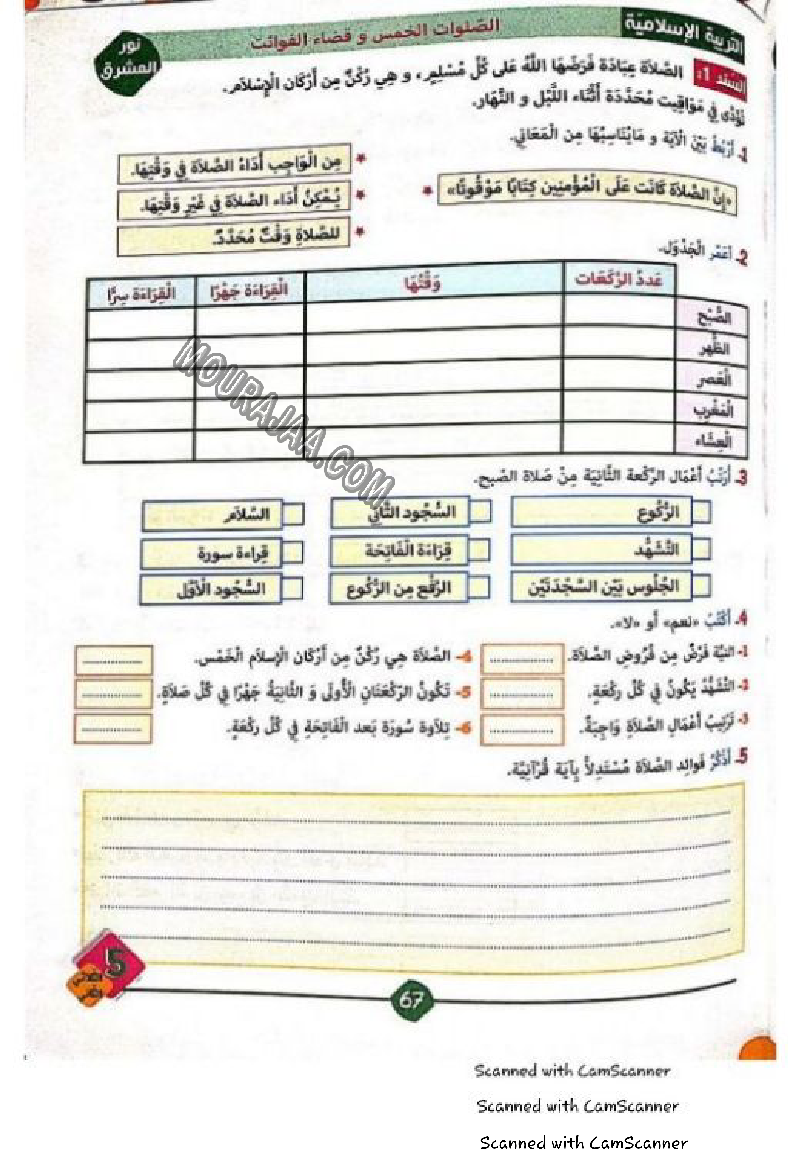 التربية الإسلامية
الصّلوات الخمس و قضاء الفوائت
نور المشرق
السند 1: الصَّلَاة عِبَادَة فَرَضَهَا اللَّهُ عَلى كُلِّ مُسْلِمٍ، و هِي رُكْنٌ مِن أَرْكَان الْإِسْلَامِ.
تُؤَدَّى فِي مَوَاقِيت مُحَدَّدَة أَثْنَاء اللَّيْل و النَّهَار.
1. أَرْبِطُ بَيْنَ الْآيَة و مَايُنَاسِبُهَا مِن الْمَعَانِي.
«إِنَّ الصَّلَاةَ كَانَت عَلَى الْمُؤْمِنِين كِتَابًا مَوْقُوتًا» *
* مِن الْوَاجِب أَدَاءُ الصَّلَاةِ فِي وَقْتِهَا.
* يُمْكِنُ أَدَاء الصَّلَاةِ فِي غَيْرِ وَقْتِهَا.
* للصَّلَاةِ وَقْتٌ مُحَدَّدٌ.
2. أعَمّر الْجَدْوَل.
عَددُ الرَّكَعَات وَقْتُهَا الْقِرَاءَة جَهْرًا الْقِرَاءَة سِرًّا
الصُّبْح
الظُّهر
الْعَصر
الْمَغْرِب
الْعِشَاء
3. أُرَتّبُ أعْمَال الرَّكعة الثَّانِيَة مِنْ صَلَاة الصّبح.
الرُّكُوع السُّجُود الثَّانِي السَّلَام
التَّشَهُّد قِرَاءَة الْفَاتِحَة قِراءة سورة
الجُلُوس بَيْن السَّجْدَتَيْن الرَّفْع مِن الرُّكُوع السُّجُود الْأوَّل
4. أَكْتُبُ «نعم» أو «لا».
1- النيَّة فَرْضٌ مِن فُرُوضِ الصَّلَاة. ................ 4- الصَّلَاة هِي رُكْنٌ مِن أَرْكَان الْإِسلَام الْخَمْس. ................
2- التَّشَهُّدُ يَكُونُ فِي كُلّ رَكْعَةٍ. ................ 5- تَكُونُ الرَّكْعَتَان الْأُولَى وَ الثَّانِيَةُ جَهْرًا فِي كُلّ صَلَاةٍ. ................
3- تَرْتِيبُ أَعْمَالِ الصَّلَاةِ وَاجِبَةٌ. ................ 6- تِلَاوة سُورَة بَعد الْفَاتِحَةِ فِي كُلّ رَكْعَةٍ. ................
5. أَذْكُرُ فَوَائِد الصَّلَاة مُسْتَدِلاًّ بِآيَة قُرْآنِيَّة.
MOURAJAA.COM
5
67
Scanned with CamScanner
Scanned with CamScanner
Scanned with CamScanner